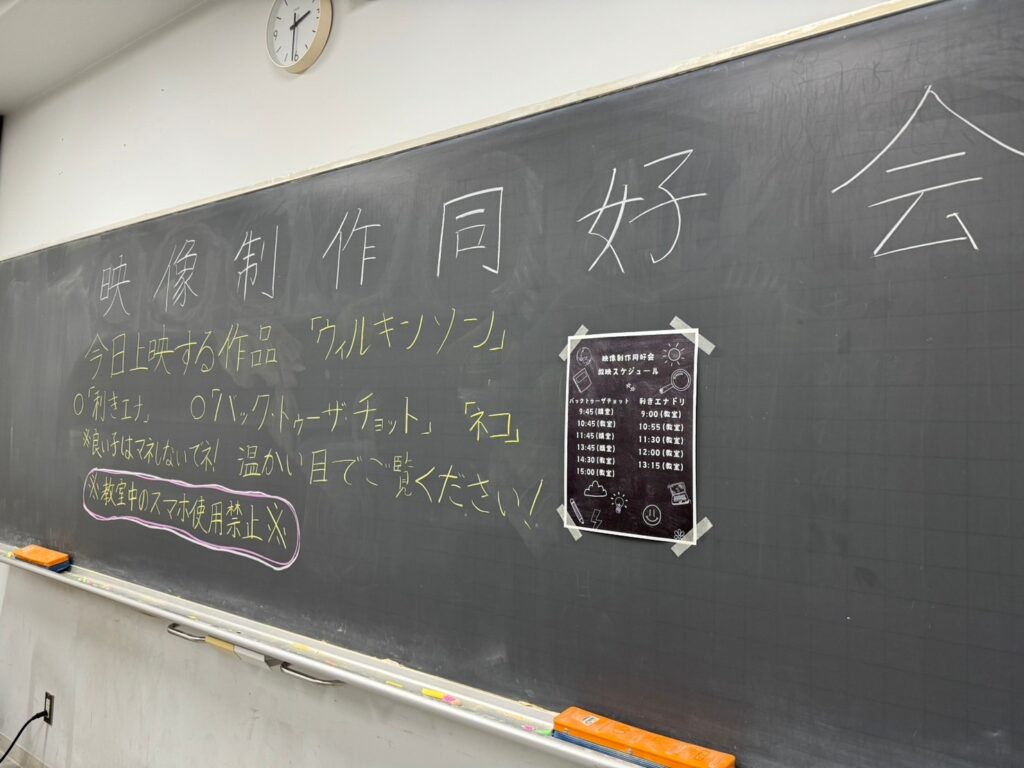 映像制作同好会
今日上映する作品 「ウィルキンソン」
○「利きエナ」 ○「バック・トゥーザ・チョット」 「ネコ」
※良い子はマネしないでネ! 温かい目でご覧ください!
※教室中のスマホ使用禁止※
映像制作同好会
放映スケジュール
バックトゥーザチョット
9:45(講堂)
10:45(教室)
11:45(講堂)
13:45(講堂)
14:30(教室)
15:00(教室)
利きエナドリ
9:00(教室)
10:55(教室)
11:30(教室)
12:00(教室)
13:15(教室)